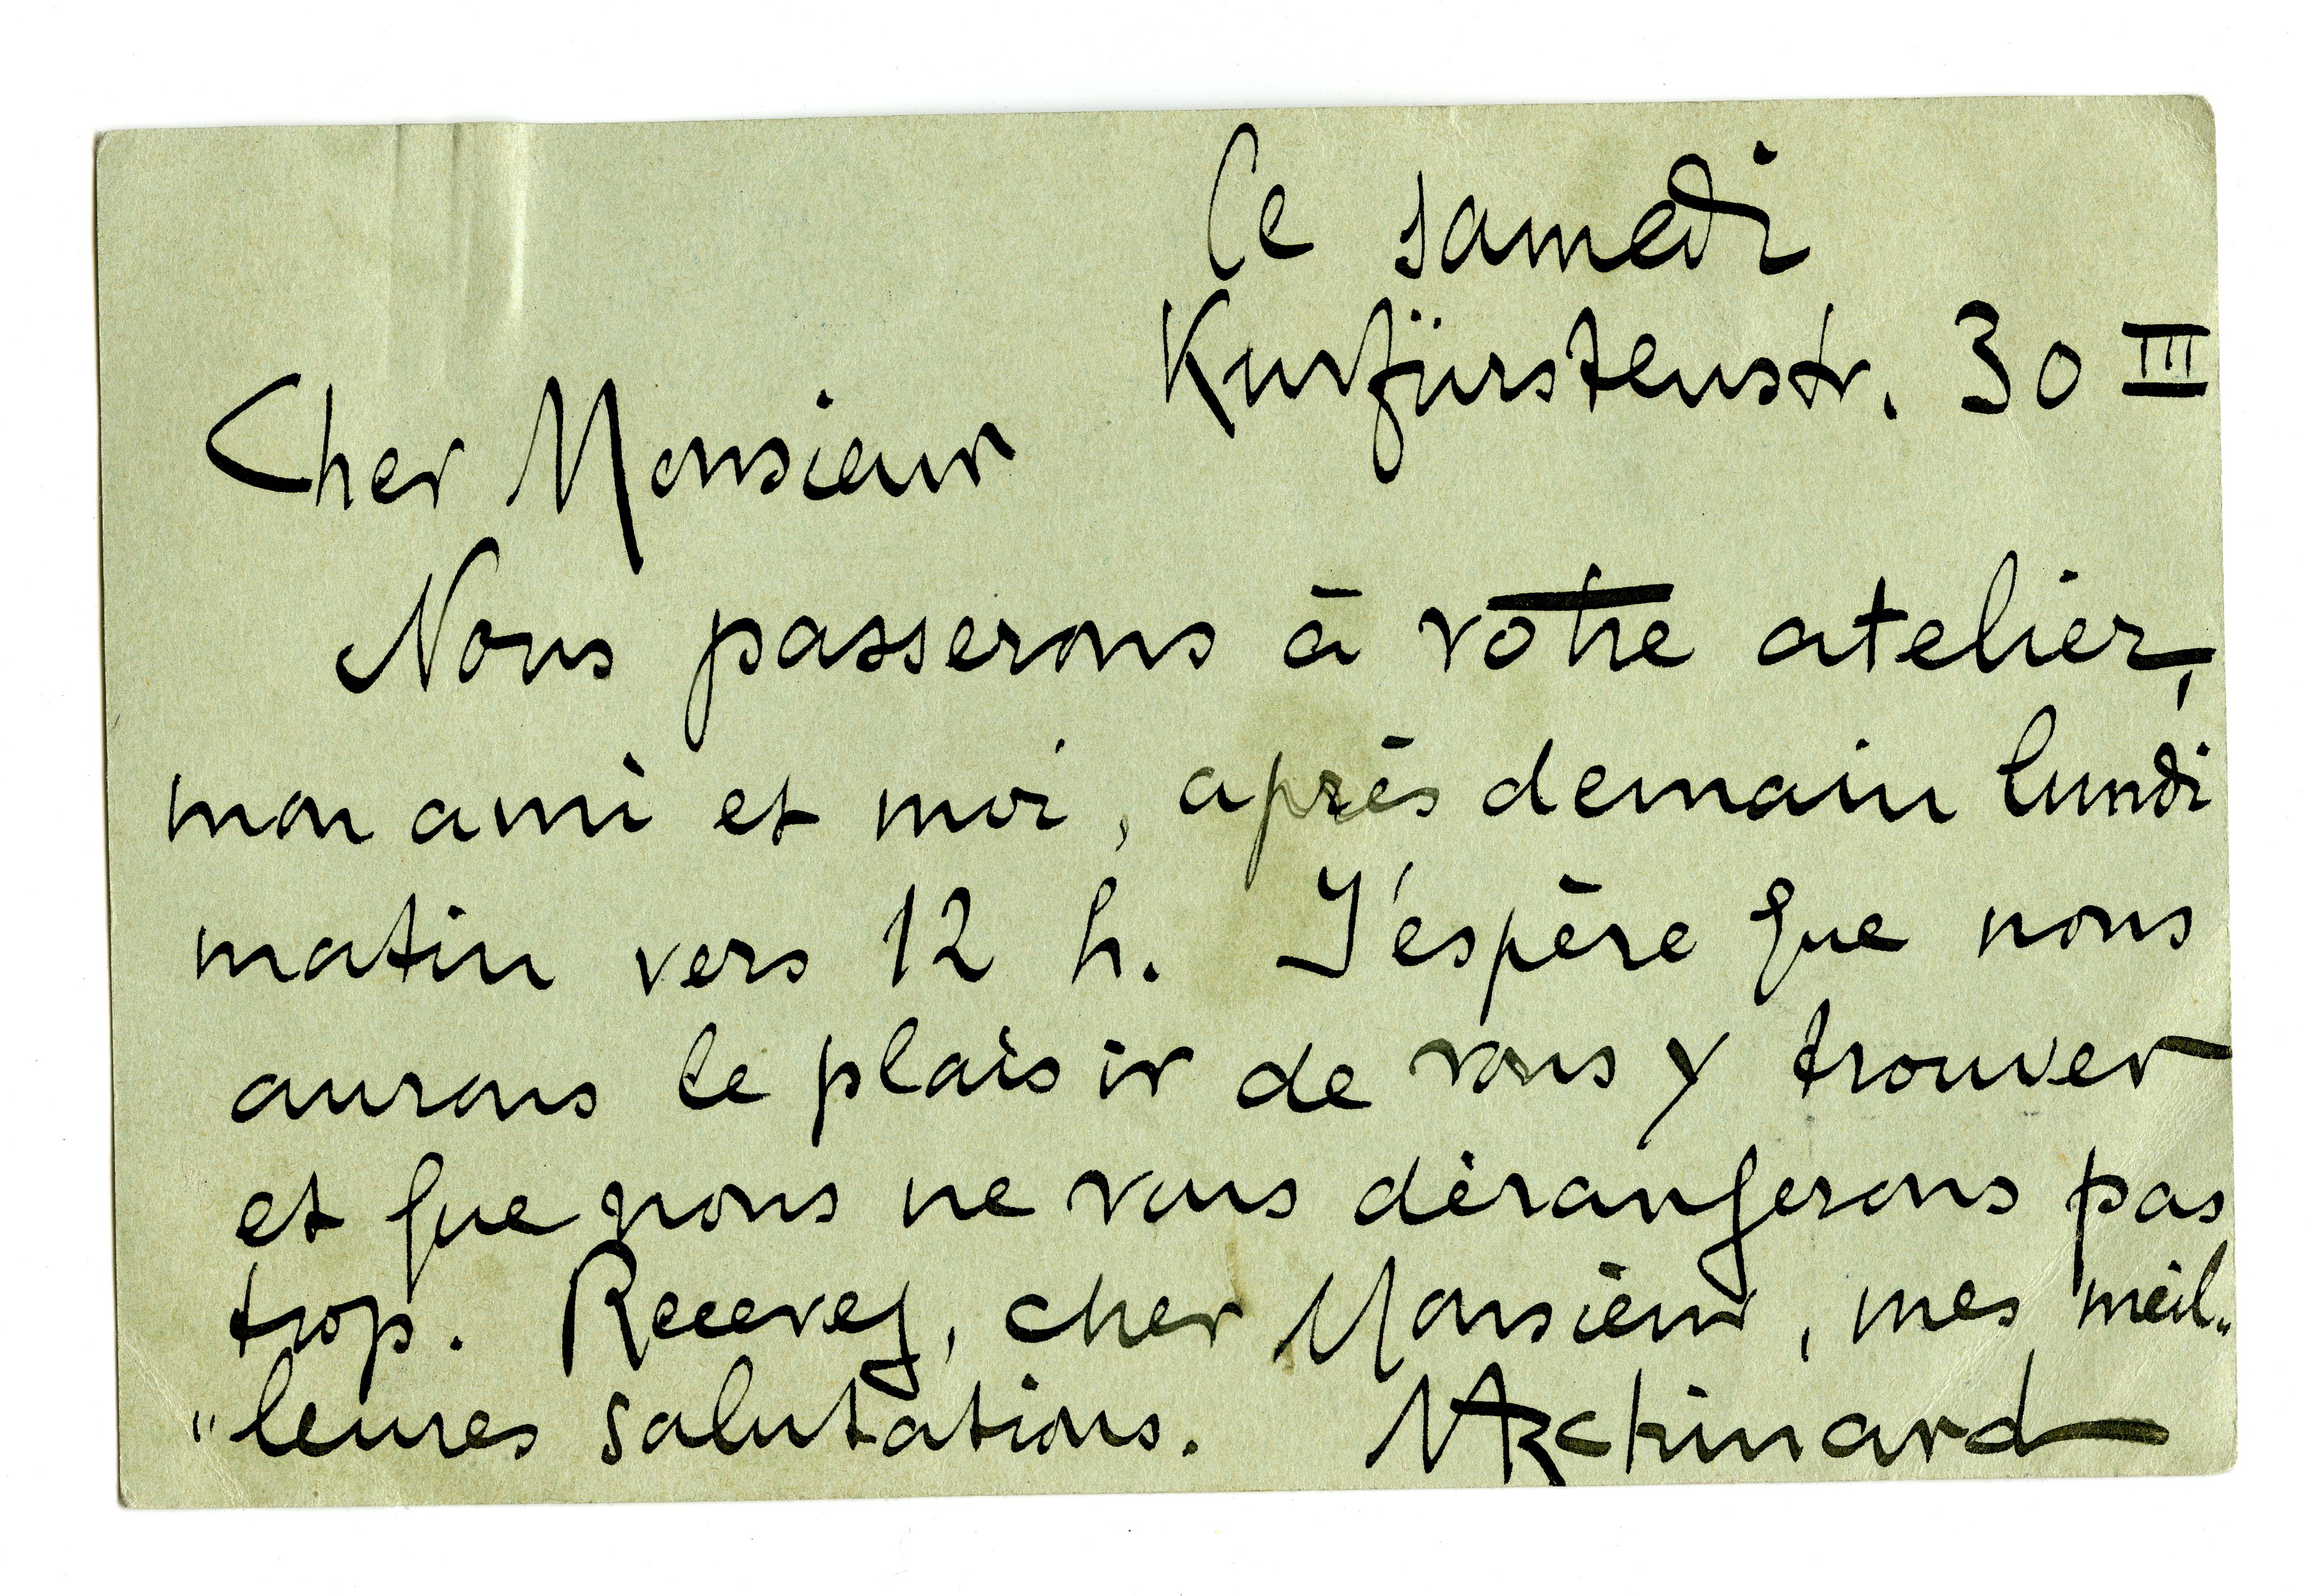 Ce samedi
Kurfürstenstr. 30 III
Cher Monsieur
Nous passerons à votre atelier,
mon ami et moi, après demain lundi
matin vers 12 h. J'espère que nous
aurons le plaisir de vous y trouver
et que nous ne vous dérangerons pas
trop. Recevez, cher Monsieur, mes meil„
"leures salutations. MArchinard